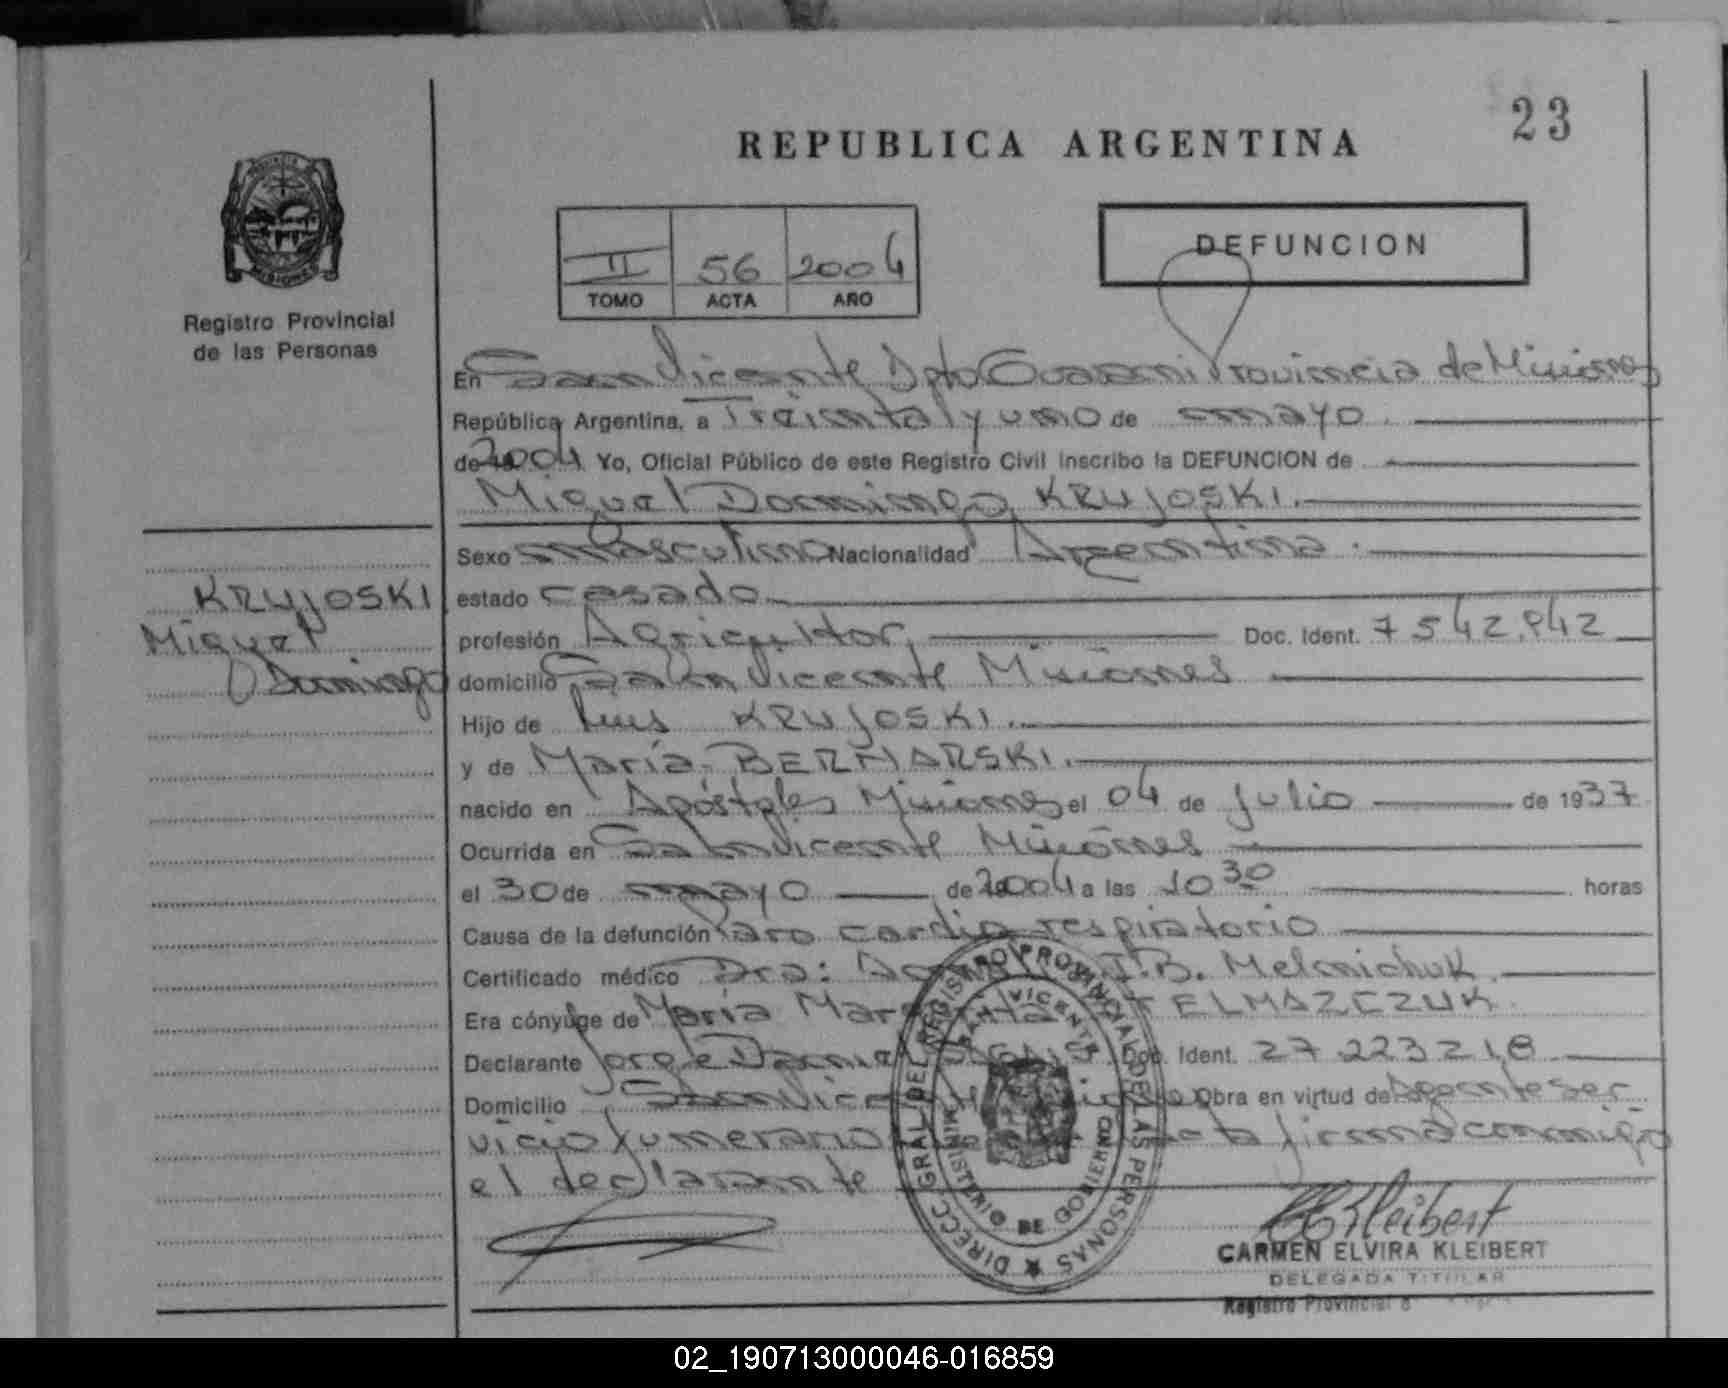 23
REPUBLICA ARGENTINA
PROVINCIA
MISIONES
Registro Provincial
de las Personas
II 56 2004
TOMO ACTA AÑO
DEFUNCION
En San Vicente Dpto Guaraní Provincia de Misiones
República Argentina, a Treinta y uno de mayo
de 2004 Yo, Oficial Público de este Registro Civil inscribo la DEFUNCION de
Miguel Domingo KRUJOSKI.
KRUJOSKI
Miguel
Domingo
Sexo masculino Nacionalidad Argentina.
estado casado
profesión Agricultor, Doc. Ident. 7542.842
domicilio San Vicente Misiones
Hijo de Luis KRUJOSKI.
y de María BERNARSKI.
nacido en Apóstoles Misiones el 04 de julio de 1937
Ocurrida en San Vicente Misiones
el 30 de mayo de 2004 a las 10 30 horas
Causa de la defunción Paro cardio respiratorio
Certificado médico Dra: I.B. Melnichuk.
Era cónyuge de María TELMASZCZUK
Declarante Jorge Daniel Doc. Ident. 27 223218
Domicilio San Vicente Obra en virtud de Agente Ser
vicio funerario acta firma conmigo
el declarante
DIRECC. GRAL. DEL REGISTRO PROVINCIAL DE LAS PERSONAS
SAN VICENTE
MINISTERIO DE GOBIERNO
CKleibert
CARMEN ELVIRA KLEIBERT
DELEGADA TITULAR
Registro Provincial
02_190713000046-016859